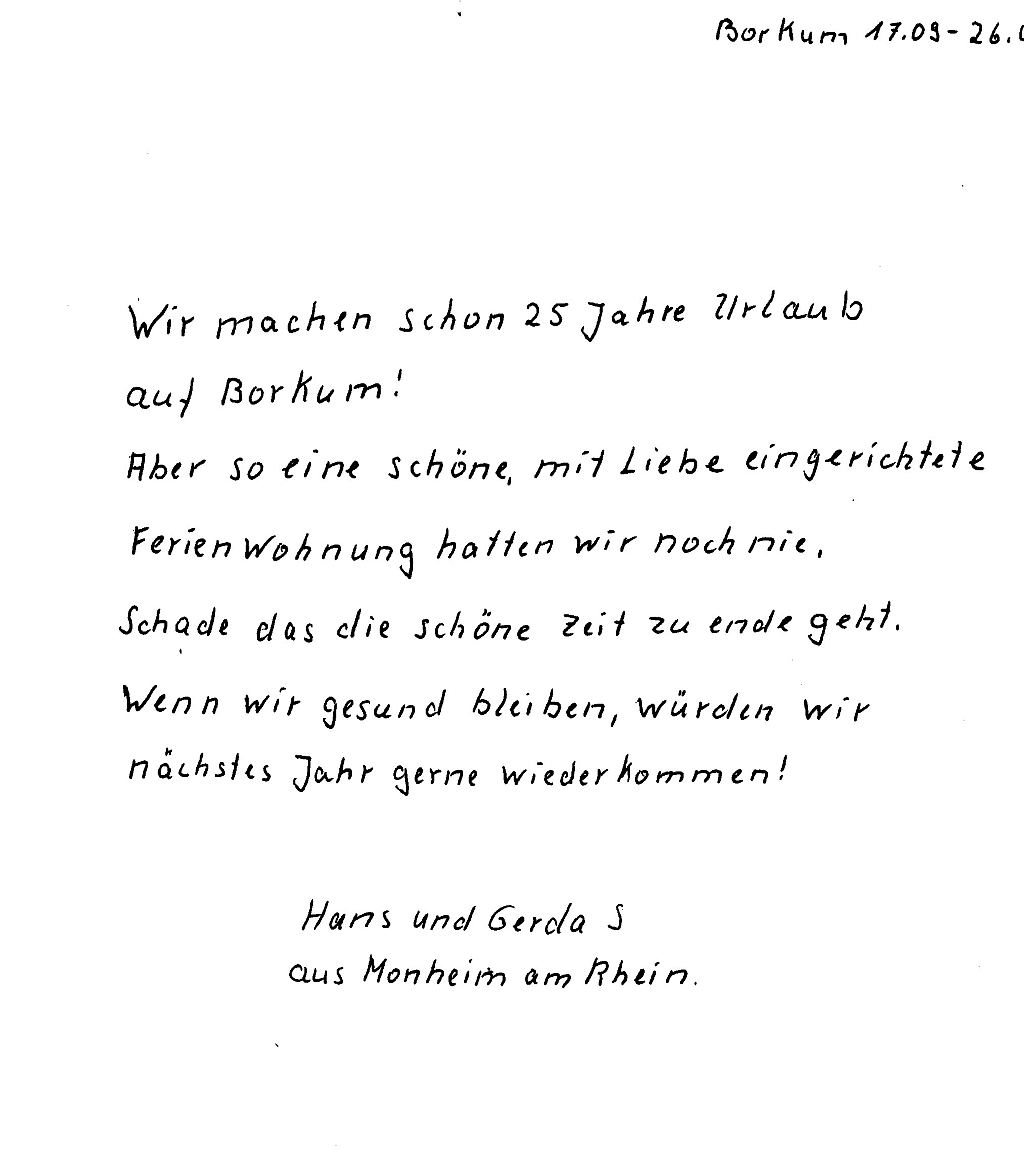 Borkum 17.09-26.
Wir machen schon 25 Jahre Urlaub
auf Borkum!
Aber so eine schöne, mit Liebe eingerichtete
Ferienwohnung hatten wir noch nie.
Schade das die schöne Zeit zu ende geht.
Wenn wir gesund bleiben, würden wir
nächstes Jahr gerne wiederkommen!
Hans und Gerda S
aus Monheim am Rhein.